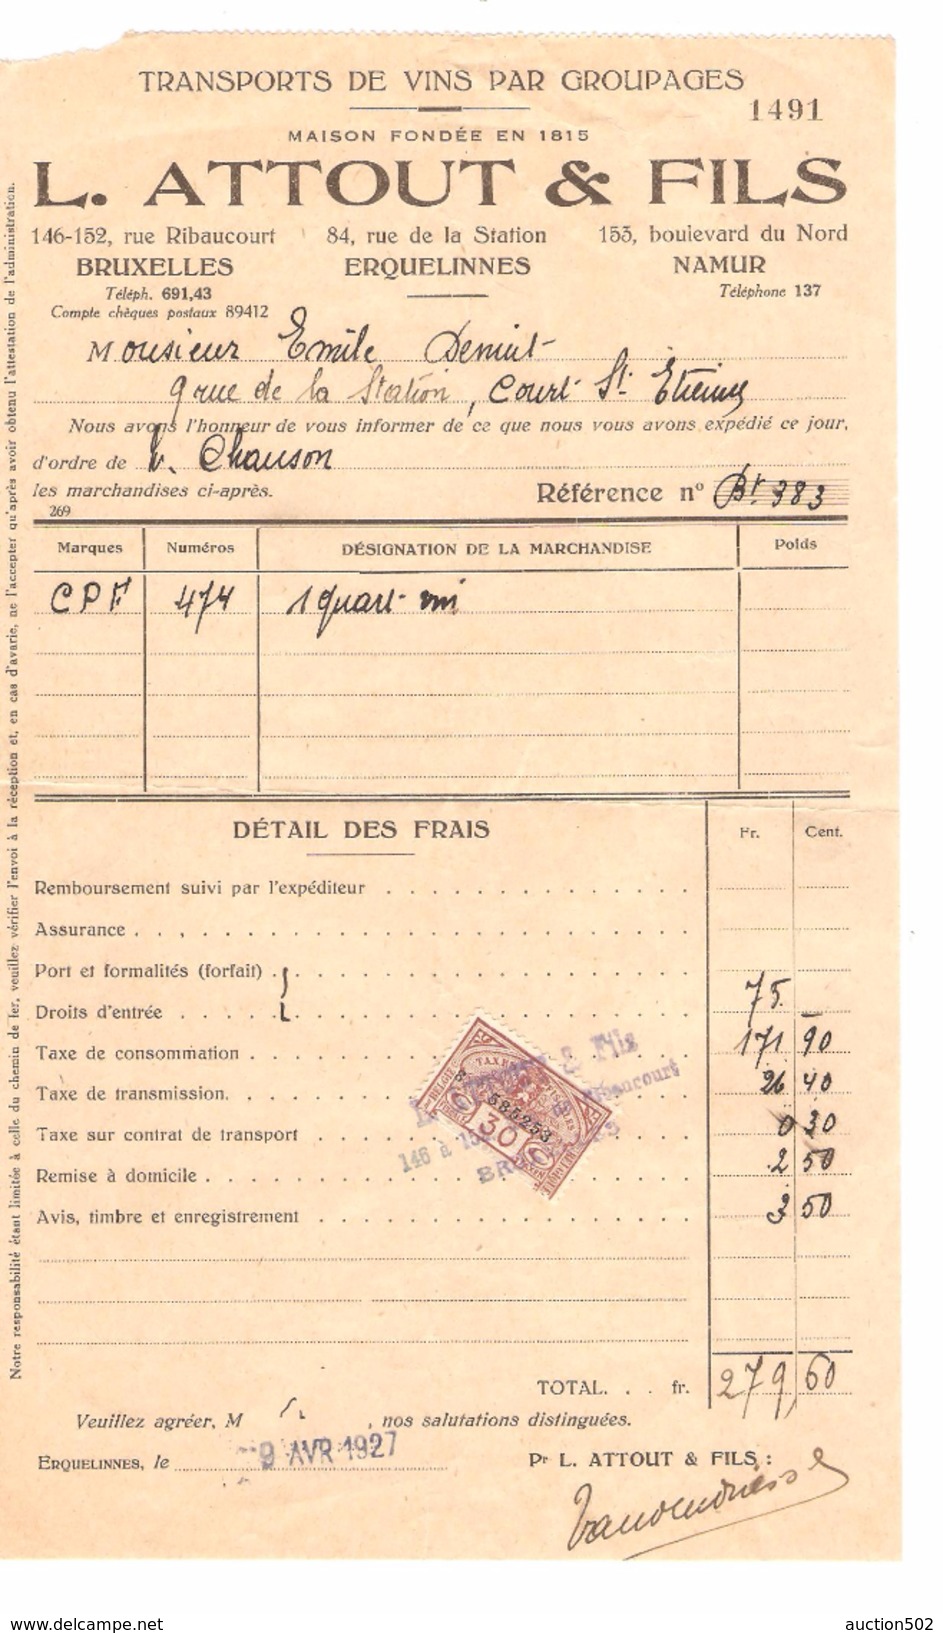 TRANSPORTS DE VINS PAR GROUPAGES
1491
MAISON FONDÉE EN 1815
L. ATTOUT & FILS
146-152, rue Ribaucourt 84, rue de la Station 153, boulevard du Nord
BRUXELLES ERQUELINNES NAMUR
Téléph. 691,43 Téléphone 137
Compte chèques postaux 89412
Monsieur Emile
9 rue de la Station, Court St Etienne
Nous avons l'honneur de vous informer de ce que nous vous avons expédié ce jour,
d'ordre de V. Chanson
les marchandises ci-après. Référence nº Bt 383
269
Marques Numéros DÉSIGNATION DE LA MARCHANDISE Poids
CPF 474 1 quart vin
DÉTAIL DES FRAIS Fr. Cent.
Remboursement suivi par l'expéditeur
Assurance
Port et formalités (forfait)
Droits d'entrée 75 —
Taxe de consommation 171 90
Taxe de transmission. 26 40
Taxe sur contrat de transport 0 30
Remise à domicile 2 50
Avis, timbre et enregistrement 3 50
585253
30
TOTAL. . . fr. 279,60
Veuillez agréer, M , nos salutations distinguées.
ERQUELINNES, le 9 AVR 1927 Pr L. ATTOUT & FILS :
Notre responsabilité étant limitée à celle du chemin de fer, veuillez vérifier l'envoi à la réception et, en cas d'avarie, ne l'accepter qu'après avoir obtenu l'attestation de l'administration.
http://www.delcampe.net auction502